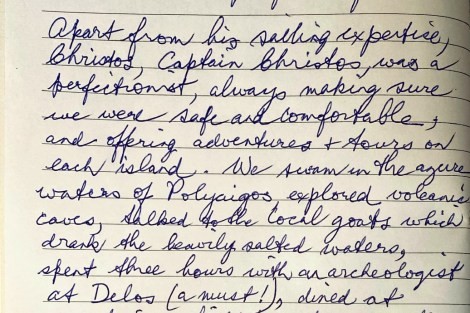 Apart from his sailing expertice,
Christos, Captain Christos, was a
perfectionist, always making sure
we were safe and comfortable,
and offering adventures + tours on
each island. We swam in the azure
waters of Polyaigos, explored volcanic
caves, talked to the local goats which
drank the heavily salted waters,
spent three hours with an archeologist
at Delos (a must!), dined at